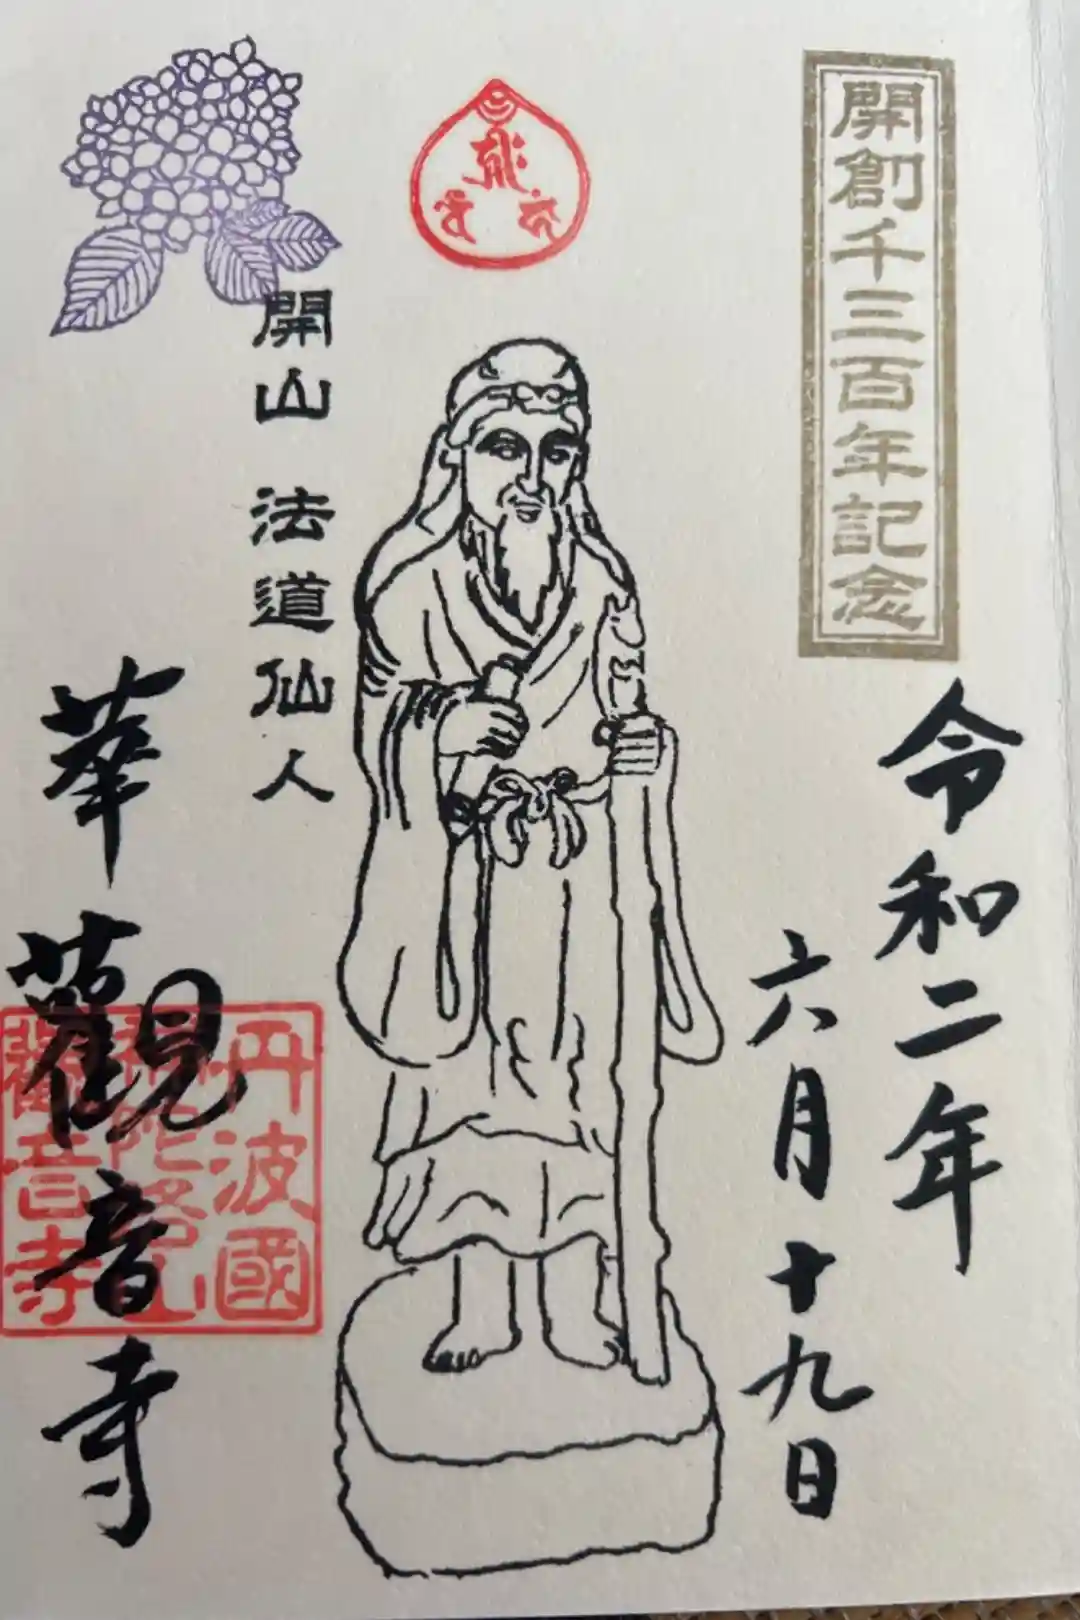 開創千三百年記念
令和二年
六月十九日
開山 法道仙人
華觀音寺
丹波國
觀音寺